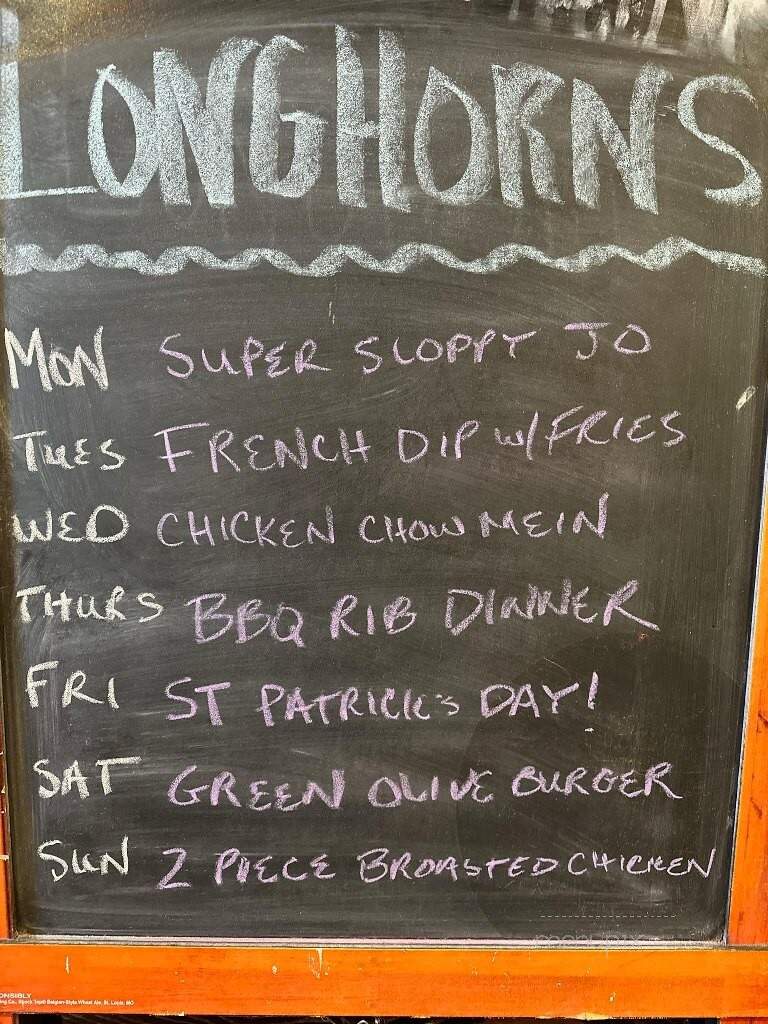 LONGHORNS
MON SUPER SLOPPY JO
TUES FRENCH DIP w/FRIES
WED CHICKEN CHOW MEIN
THURS BBQ RIB DINNER
FRI ST PATRICK'S DAY!
SAT GREEN OLIVE BURGER
SUN 2 PIECE BROASTED CHICKEN
ONSIBLY
ing Co., Shock Top® Belgian-Style Wheat Ale, St. Louis, MO